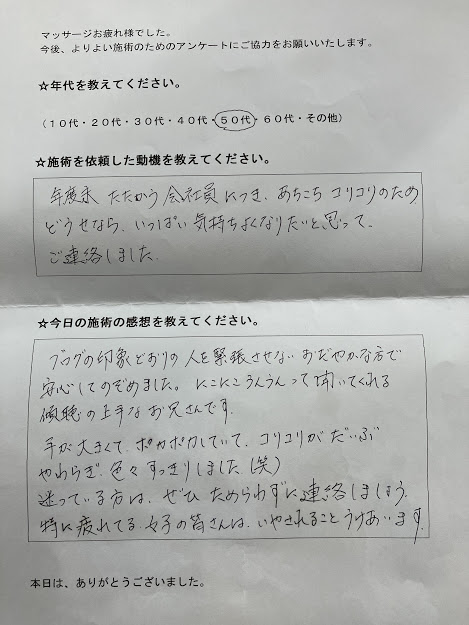 マッサージお疲れ様でした。
今後、よりよい施術のためのアンケートにご協力をお願いいたします。
☆年代を教えてください。
（１０代・２０代・３０代・４０代・５０代・６０代・その他）
☆施術を依頼した動機を教えてください。
年度末 たたかう 会社員につき、あちこち コリコリのため
どうせなら、いっぱい 気持ちよくなりたいと思って、
ご連絡しました。
☆今日の施術の感想を教えてください。
ブログの印象どおりの 人を緊張させない おだやかな方で
安心してのぞめました。にこにこ うんうん って 聞いてくれる
傾聴の上手な お兄さんです。
手が 大きくて、ポカポカしていて、コリコリが だいぶ
やわらぎ、色々 すっきりしました（笑）
迷っている方は、ぜひ ためらわずに 連絡しましょう。
特に疲れてる 女子の皆さんは、いやされること うけあいます。
本日は、ありがとうございました。